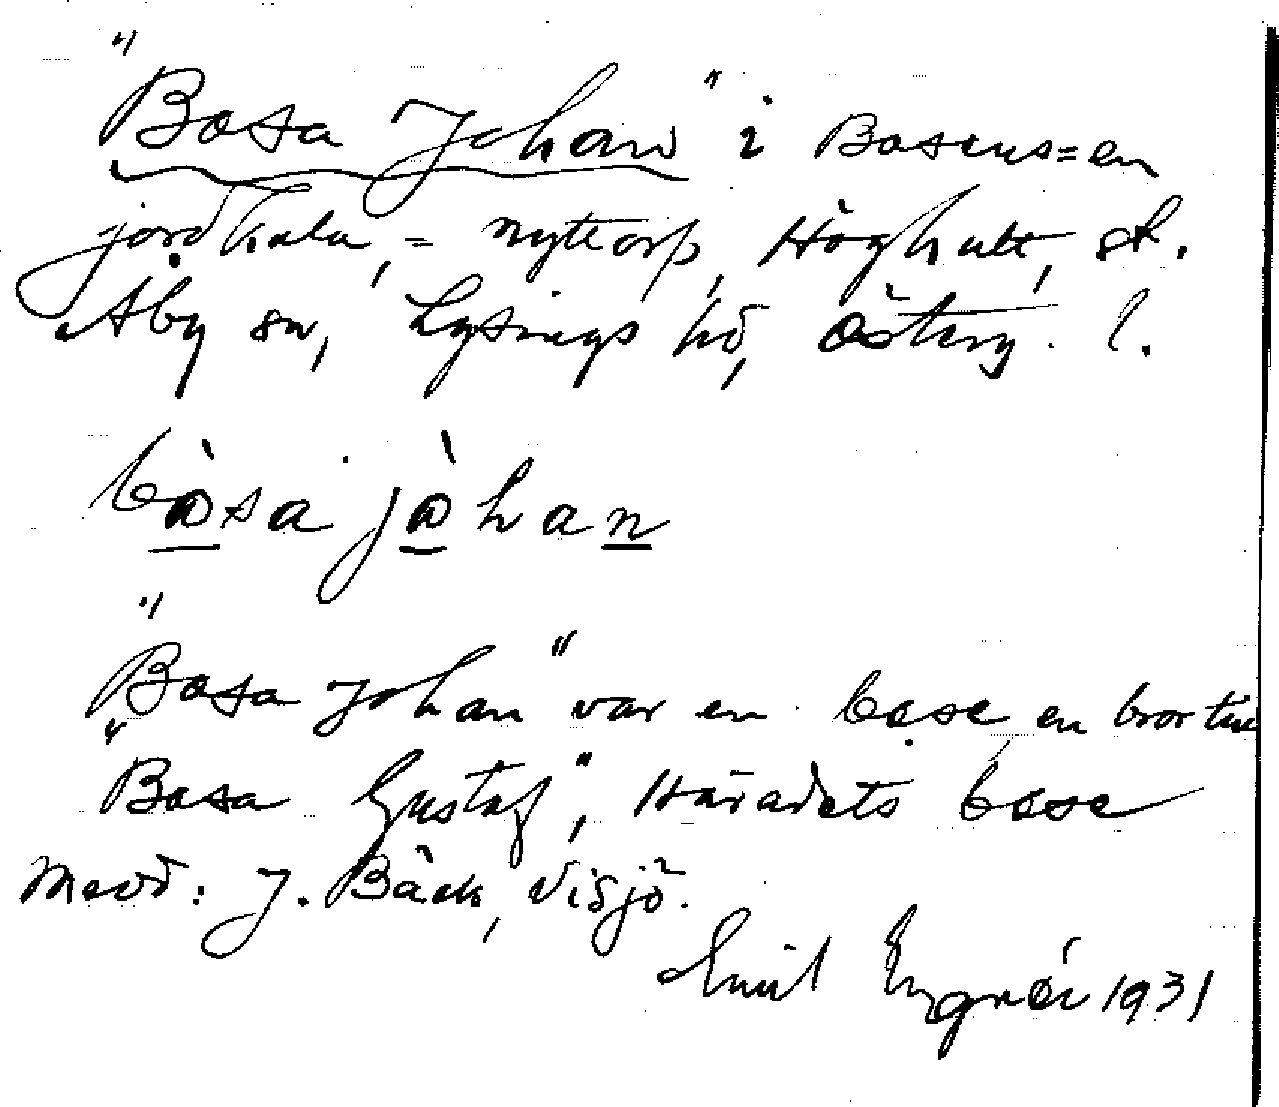 "Bosa Johan" i Bosens=en
jordkula, = nyttorp, Höghult, st.
Åby sn, Lysings hd, Österg. l.
bòsa jòhan
"Bosa Johan" var en bose, en bror till
"Bosa Gustaf", Häradets bose
Medd: J. Bäck, Visjö.
Emil 1931